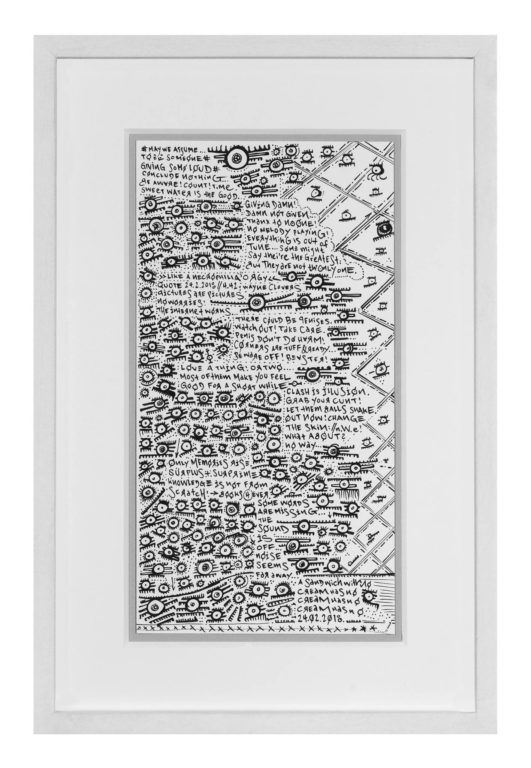 #MAY WE ASSUME...
TO BE SOMEONE#
GIVING SOMO LOUD#
CONCLUDE NOTHING
BE AWARE! COUNT! TIME.
SWEET WATER IS THE GOOD.
GIVING DAMN.
DAMN NOT GIVEN.
THANX TO NOONE!
NO MELODY PLAYING
EVERYTHING IS OUT OF
TUNE... SOME MIGHT
SAY THEI'RE THE GREATEST
BUT THEY ARE NOT THE ONLY ONE.
LIKE A ORGY
QUOTE WAYNE CLOVERS
PICTURES ARE PICTURES
NO WORRIES!
THE INTERNET WORKS
THERE COULD BE GENIUSES.
WATCH OUT! TAKE CARE
PENIS DON'T DO HARM!
CORNERS ARE TUFF & READY.
BEWARE OFF!
LOVE A THING: OR TWO.
MOST OF THEM MAKE YOU FEEL
GOOD FOR A SHORT WHILE
CLASH IS ILLUSION.
GRAB YOUR CUNT!
LET THEM BALLS SHAKE.
OUT NOW! CHANGE
THE SKIM://N.W.E!
WHAT ABOUT?
NO WAY...
ONLY MEMORIES RISE
SURPLUS + SURPRIME
KNOWLEDGE IS NOT FROM
SCRATCH! → BOOKS @ EVER
SOME WORDS
ARE MISSING.
THE
SOUND
IS
OFF.
NOISE
SEEMS
FAR AWAY.
A SANDWICH WITH NO
CREAM HAS NO
CREAM HAS NO
CREAM HAS NO
24.02.2018.